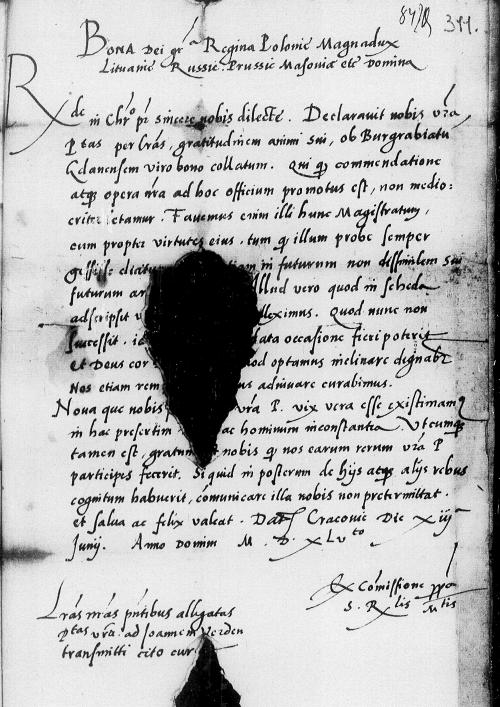 311.
Bona Dei gra Regina Polonie Magnadux
Lituanie Russie Prussie Masoviæ etc Domina
Rde in Chro pr sincere nobis dilecte. Declarauit nobis vra
ptas per lras, gratitudinem animi sui, ob Burgrabiatu
Gdanensem viro bono collatum. Qui q commendatione
atq opera nra ad hoc officium promotus est, non medio:
criter letamur. Fauemus enim illi hunc Magistratum,
cum propter virtutes eius, tum q illum probe semper
gessisse in futurum non dissimilem sui
futurum Illud vero quod in scheda
adscripsit leximus. Quod nunc non
successit. data occasione fieri poterit
et Deus cor quod optamus inclinare dignabr
Nos etiam rem adiuuare curabimus.
Noua que nobis vra P. vix vera esse existimam
in hac presertim ac hominum inconstantia. Utcumq
tamen est, gratum nobis q nos earum rerum vra P
participes fecerit. Si quid in posterum de hijs atq alijs rebus
cognitum habuerit, comunicare illa nobis non pretermittat.
et salua ac felix valeat. Dat Craconie Die xiij
Junij. Anno Domini M. D. xLvto
Ex Comissione ppa
S. Rlis Mtis
Lras nras pntibus alligatas
ptas vra ad Joannem Werden
transmitti cito curet